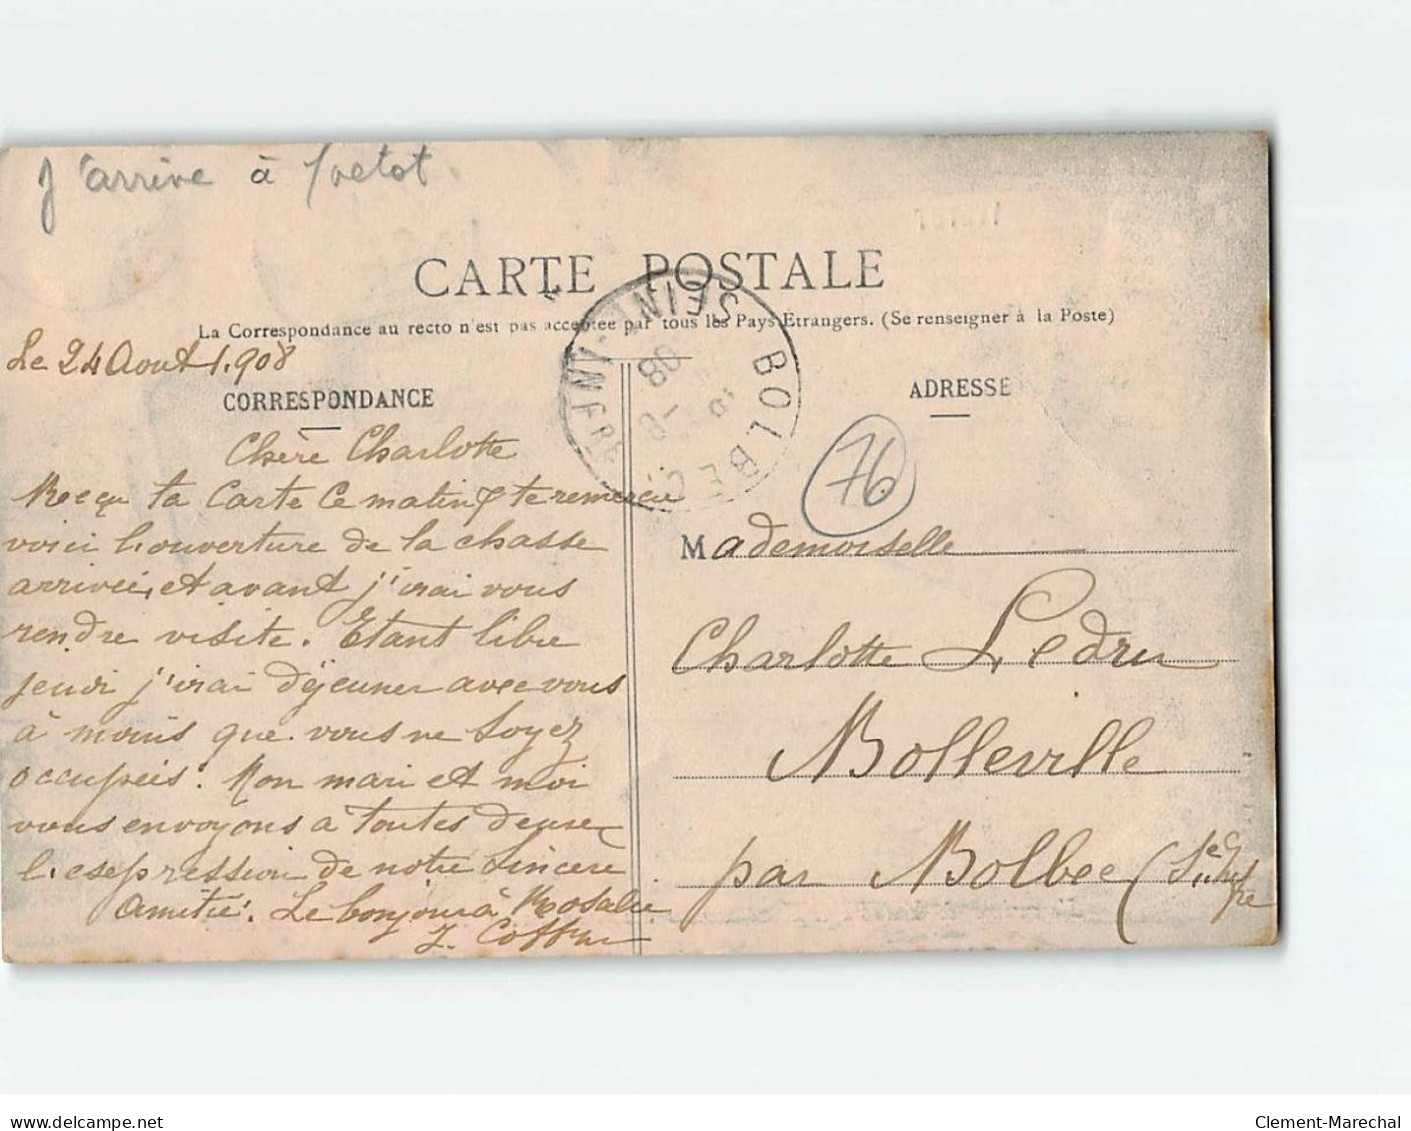 J'arrive à Yvetot.
CARTE POSTALE
La Correspondance au recto n'est pas acceptée par tous les Pays Etrangers. (Se renseigner à la Poste)
Le 24 Aout 1.908
CORRESPONDANCE
Chère Charlotte
Recçu ta Carte Ce matin te remercie
voici l'ouverture de la chasse
arrivée, et avant j'irai vous
rendre visite. Etant libre
jeudi j'irai déjeuner avec vous
à moins que vous ne soyez
occupeés. Mon mari et moi
vous envoyons à toutes deux
l'espression de notre sincère
Amitié. Le bonjour à Rosalie
BOLBEC
SEINE-INFRE
08
ADRESSE
76
Mademoiselle
Charlotte Ledru
Bolleville
par Bolbec (Sne Infre
delcampe.net
Clement-Marechal